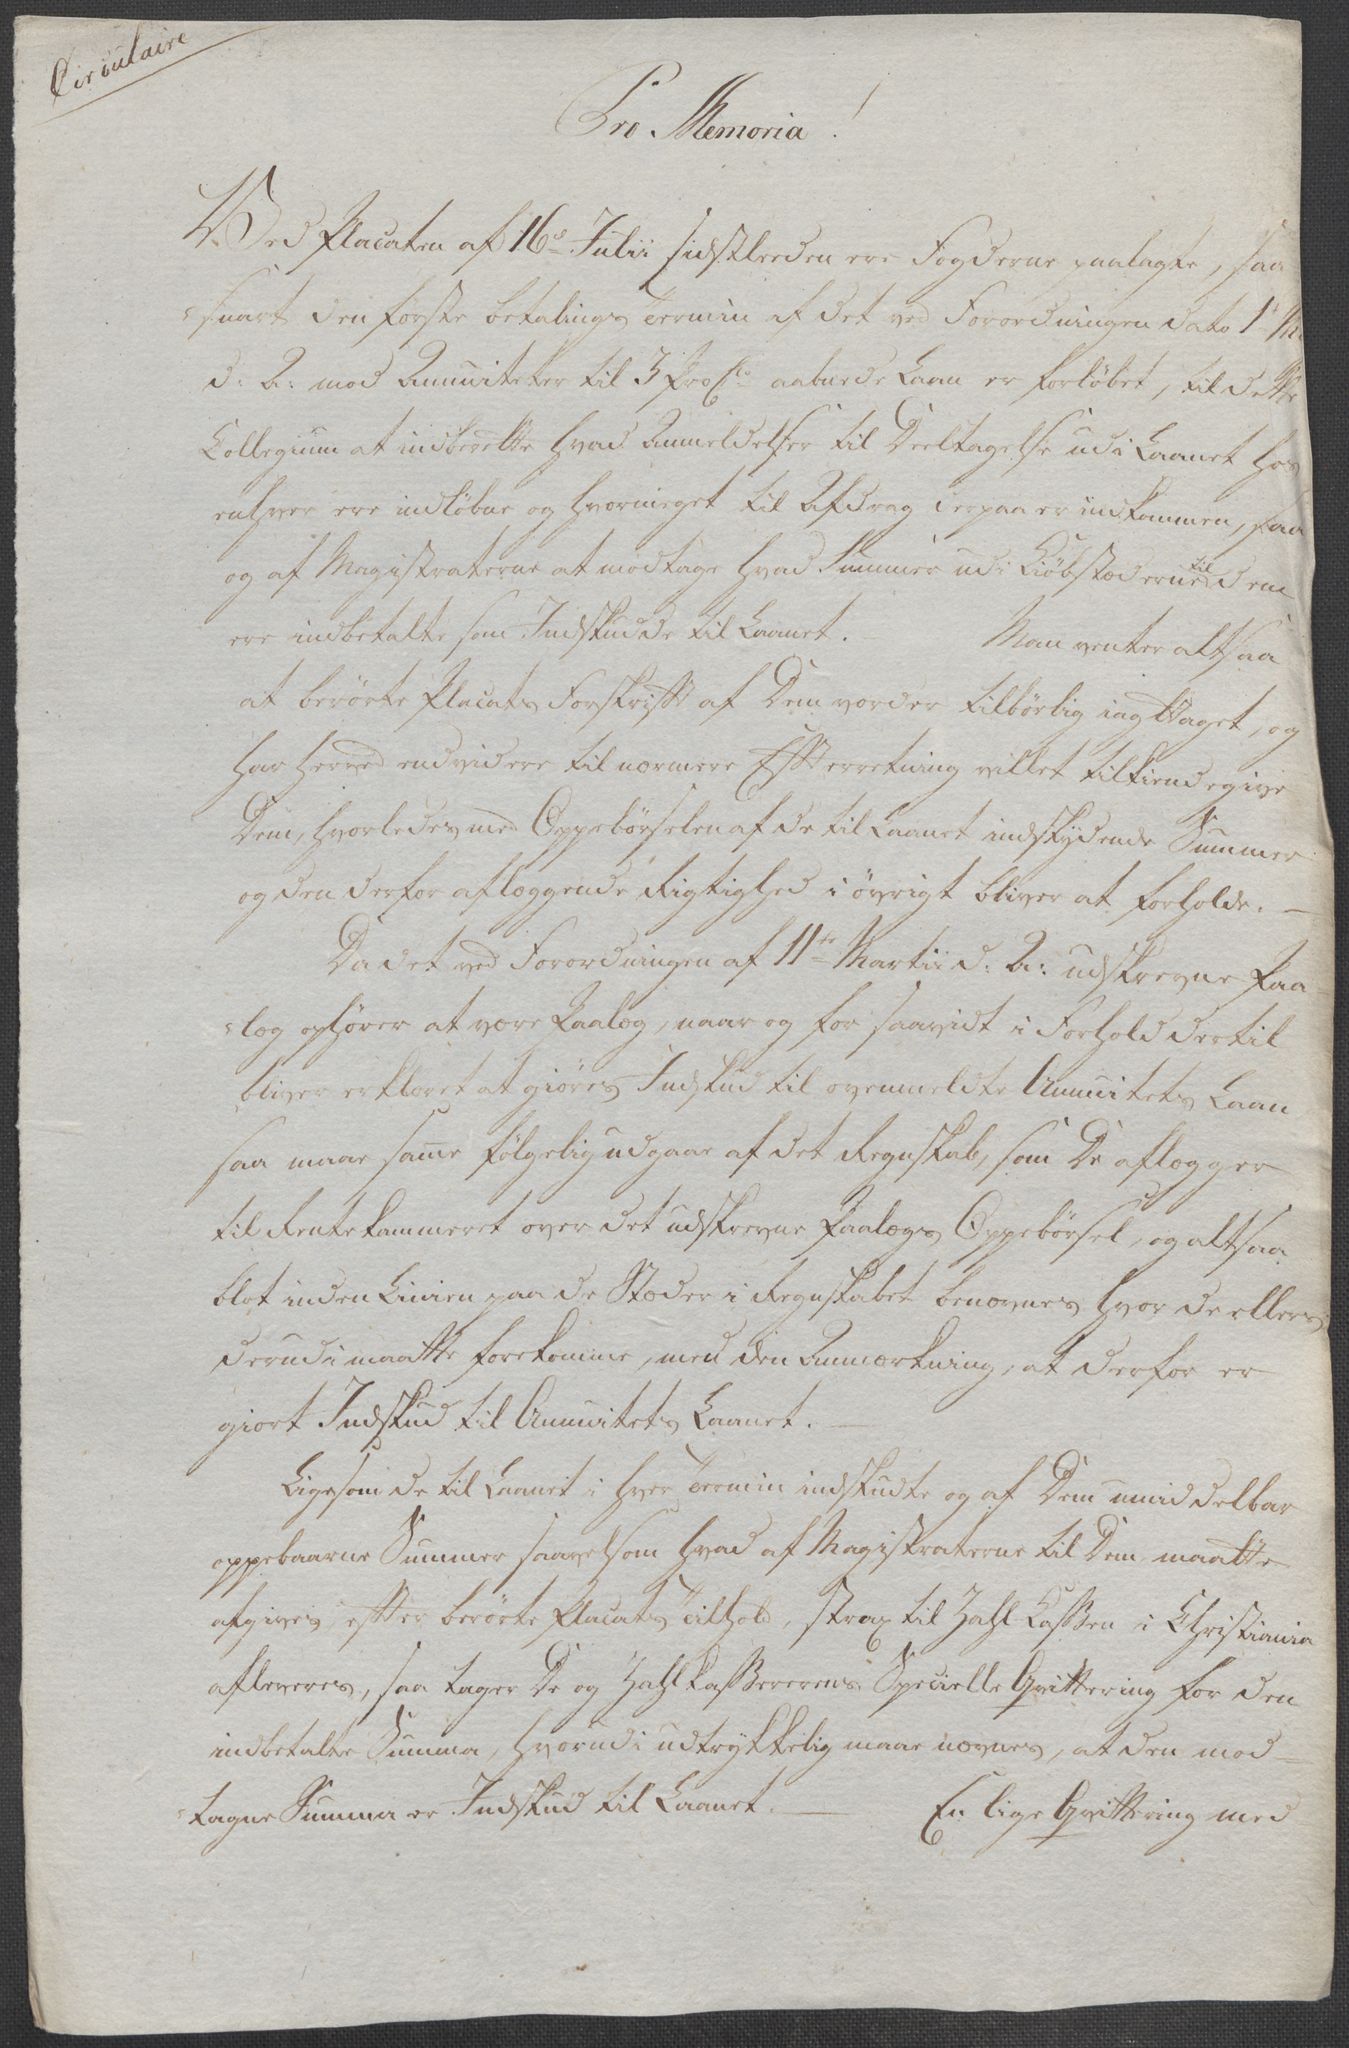 Circulaire
Pro Memoria!
Ved Placaten af 16de Julii sidstleeden ere Fogderne paalagte, saa
-snart den første betalings Termin af det ved Forordningen dato
d: A: mod Annuiteter til 3 ProCto aabnede Laan er forløbet, til dette
Collegium at indberette hvad Anmeldelser til Deeltagelse udi Laanet hos
enhver ere indløbne og hvormeget til Afdrag derpaa er indkommen, saa
og af Magistraterne at modtage hvad Summer udi Kiøbstæderne til dem
ere indbetalte som Indskudde til Laanet. Man venter altsaa
at berørte Placats Forskrift af Dem vorder tilbørlig iagttaget, og
har herved endvidere til nærmere Efterretning villet tilkiendegive
Dem, hvorledes med Oppebørselen af de til Laanet indskydende Summer
og den derfor aflæggende Rigtighed i øvrigt bliver at forholde. —
Da det ved Forordningen af 11te Martii d: A: udskrevne Paa-
-læg ophører at være Paalæg, naar og for saavidt i Forhold dertil
bliver erklæret at giøres Indskud til ovenmeldte Annuitets Laan
saa maae samme følgelig udgaae af det Regnskab, som De aflægger
til Rentekammeret over det udskrevne Paalægs Oppebørsel, og altsaa
blot inden Linien paa de Stæder i Regnskabet benævnes hvor de ellers
derudi maatte forekomme, med den Anmærkning, at derfor er
giort Indskud til Annuitets Laanet. —
Ligesom de til Laanet i hver Termin indskudte og af Dem umiddelbar
oppebaarne Summer saavelsom hvad af Magistraterne til Dem maatte
afgives, efter berørte Placats Tilhold, strax til Zahl Cassen i Christiania
afleveres, saa tager De og Zahlkassererens Specielle Qvittering for den
indbetalte Summa, hvorudi udtrykkelig maae nævnes, at den mod-
-tagne Summa er Indskud til Laanet. — En lige Qvittering med